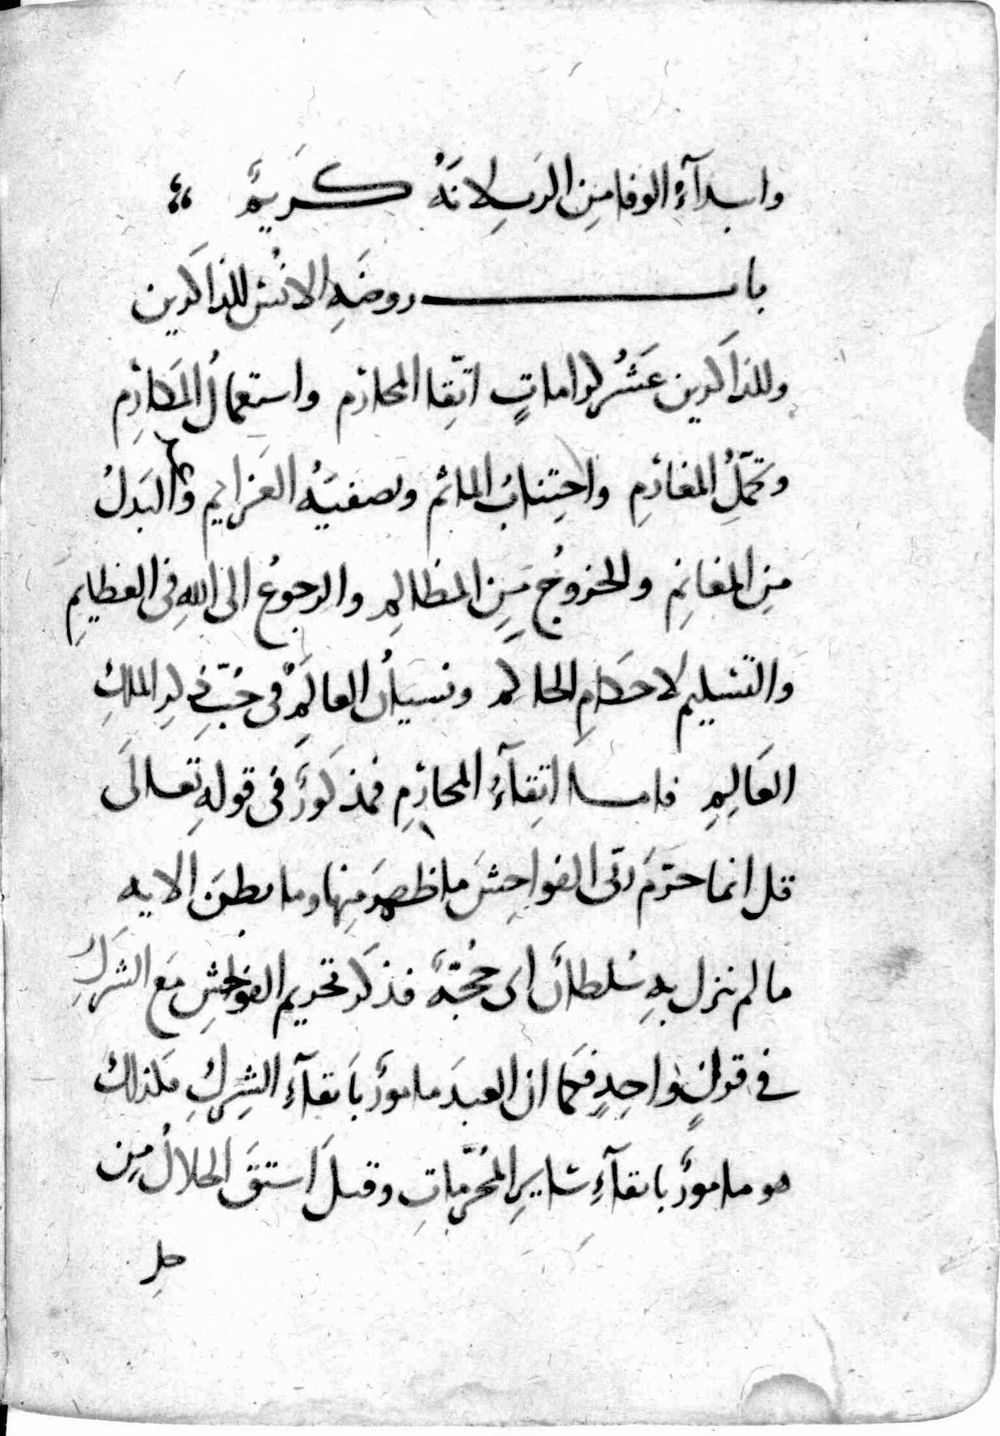 وابتدآءُ الوفا مِن الرَبِ لانهُ كَريمٌ
باب روضَةِ الانُس للذاكرين
وللذاكرين عَشرُ كراماتٍ اتقِا المحارم واستعمالُ المكارِمِ
وتحمّلِ المغارِمِ واجتِنابُ الماثم وتصفيَةُ العَزايم والبَدلُ
مِن المغانِم والخروُج مِن المظالِم والرجوعُ الى اللهِ فى العظايمِ
والتسليم لاحكامِ الحاكم ونسيانُ العالَمِ فى حُبّ ذِكرِ الملكِ
العَالِمِ فامـا اتِقآءُ المحارِمِ فمذكورٌ فى قولهِ تعَالَى
قل انما حَرّمَ رَبّى الفواحِشَ ماظهَر مِنها وما بطَنَ الايه
مالم ننزل بهِ سُلطانًا اى حُجّةً فذكر تحريم الفواحِشِ مَع الشِركِ
فى قولٍ واحِدٍ فكما ان العبدَ مامورٌ باتقآءِ الشِركِ فلذلك
هو مامورٌ باتقآءِ سايِرِ المُحَرّماتِ وقيل اَستقَ الحلالُ مِن
حل